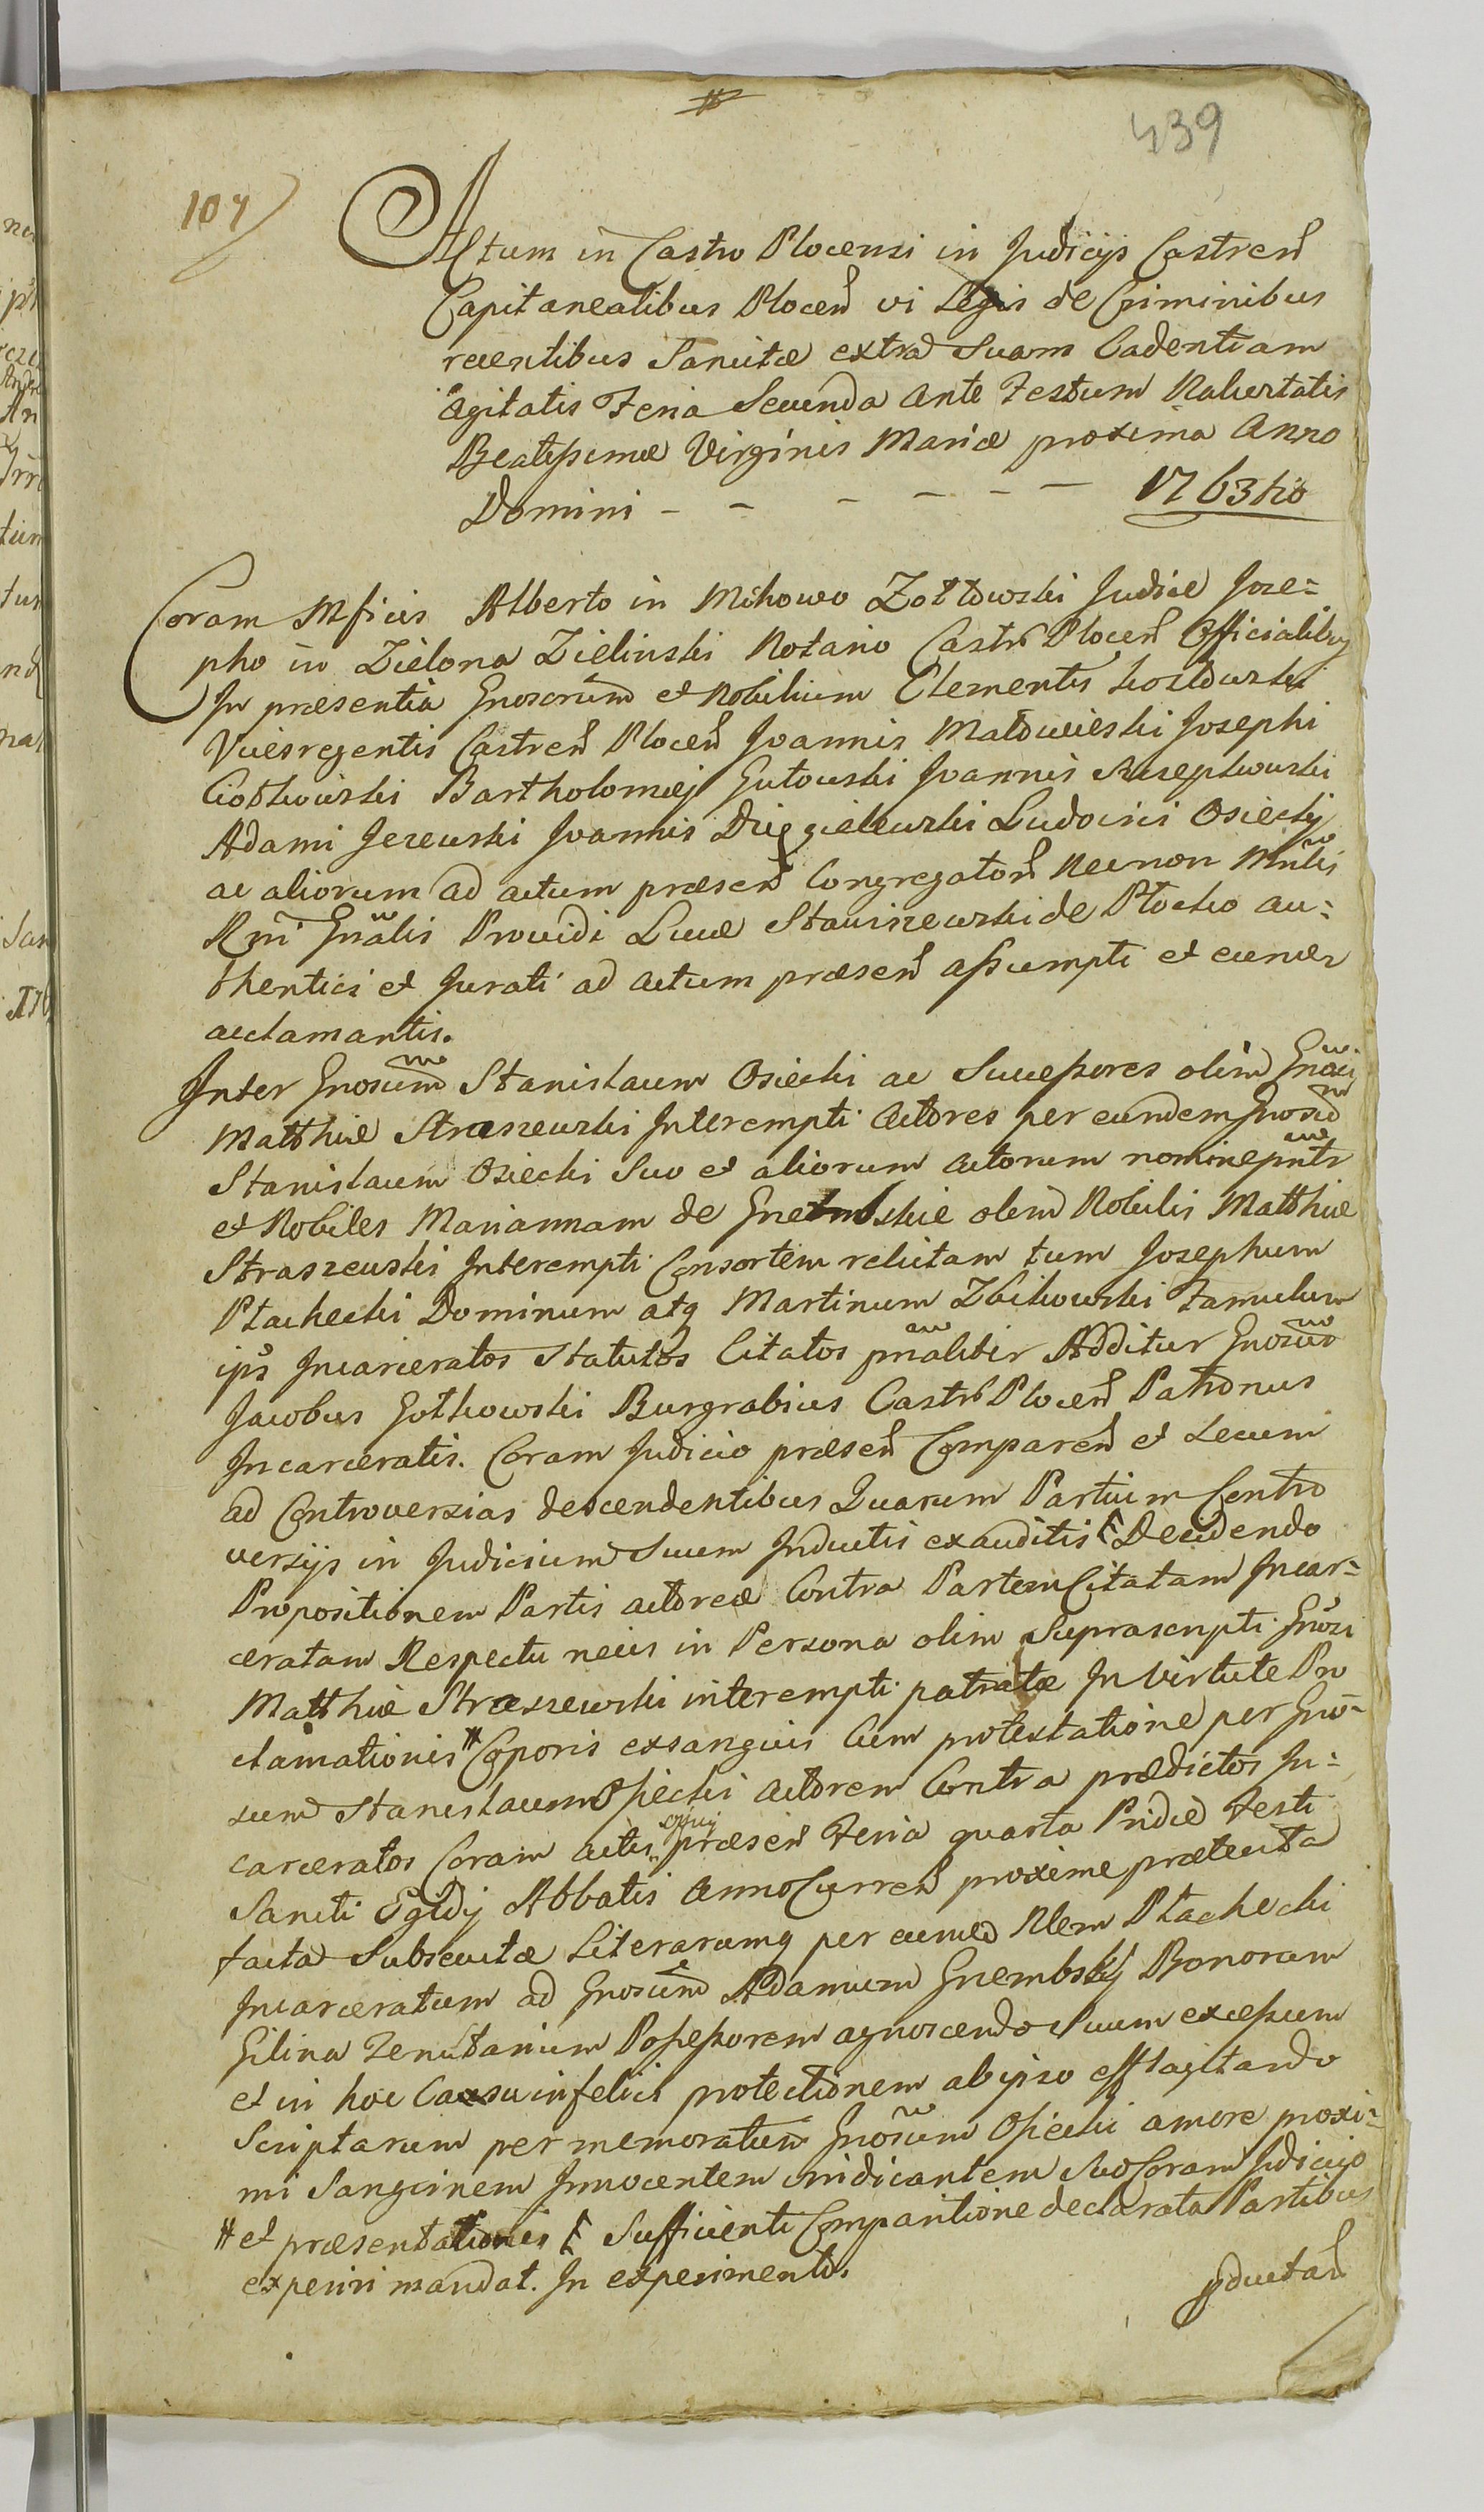 439
107
Actum in Castro Plocensi in Judicijs Castren̄
Capitanealibus Plocen̄ vi Legis de Criminibus
recentibus Sancitæ extra Suam Cadentiam
Agitatis Feria Secunda Ante Festum Nativitatis
Beatissimæ Virginis Mariæ proxima Anno
Domini - - - - - - 1763tio
Coram Mficis Alberto in Mikowo Zołtowski Judice Jose=
pho in Zielona Zielinski Notario Castri Plocen̄ Officialibus
In præsentia Gnosorum et Nobilium Clementis
Vicesregentis Castren̄ Plocen̄ Joannis Josephi
Bartholomæj Gutowski Joannis
Adami Jezewski Joannis Dziegielewski Ludovici Osiecky
ac aliorum ad actum præsen̄ Congregator̄ Nec non Mnlis
Rni Gnalis Providi Lucæ Staniszewski de Płocko au=
thentici et Jurati ad actum præsen̄ assumpti et eum
acclamantis.
Inter Gnosum Stanislaum Osiecki ac Successores olim Gnosi
Matthiæ Straszewski Interempti Actores per eundem Gnosum
Stanislaum Osiecki Suo et aliorum Actorum nomine pntr
et Nobiles Mariannam de olim Nobilis Matthiæ
Straszewski Interempti Consortem relictam tum Josephum
Ptachecki Dominum atq Martinum Zbikowski Famulum
ips Incarceratos Statutos Citatos pnaliter Additur Gnosus
Jacobus Gotkowski Burgrabius Castri Plocen̄ Patronus
Incarceratis. Coram Judicio præsen̄ Comparen̄ et Secum
ad Controversias descendentibus Quarum Partium Contro
versijs in Judicium Suum Inductis exauditis Decidendo
Propositionem Partis actoreæ Contra Partem Citatam Incar=
ceratam Respectu necis in Persona olim Suprascripti Gnosi
Matthiæ Straszewski interempti patratæ In Virtute Pro
clamationis # Corporis exsanguis Cum protestatione per Gno=
sum Stanislaum Osiecki Actorem Contra prædictos In=
carceratos Coram Actis præsen̄ Feria quarta Pridie Festi
Sancti Egidij Abbatis Anno Curren̄ proxime præterita
facta Subsecutæ Literarumq per eund Nlem Ptachecki
Incarceratum ad Gnosum Adamum Gnembsky Bonorum
Gilina Tenutarium Possessorem agnoscendo Suum excessum
et in hoc Casu infelici protectionem ab ipso efflagitando
Scriptarum per memoratum Gnosum Osiecki amore proxi=
mi Sanguinem Innocentem vindicantem Suo Coram Judicijo
# et præsentationis Sufficienti Comparitione declarata Partibus
experiri mandat. In experimento.
pductar̄